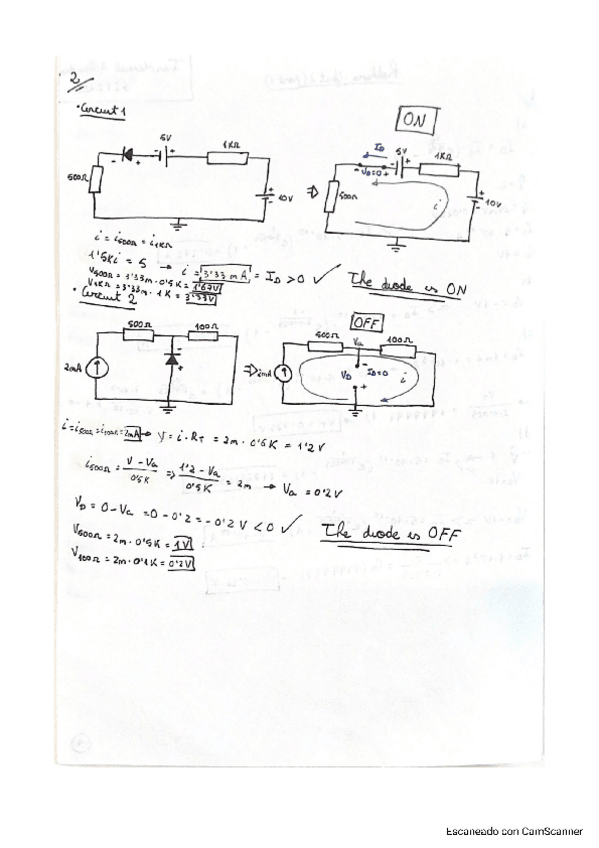 2
• Circuit 1
ON
5V
1KΩ
500Ω
10V
- +
I_D
5V
1KΩ
- V_D=0 +
500Ω
i
10V
i = i500Ω = i1KΩ
1'5Ki = 5 → i = 3'33 mA = I_D > 0 ✓
The diode is ON
V500Ω = 3'33m · 0'5K = 1'67V
V1KΩ = 3'33m · 1K = 3'33V
• Circuit 2
OFF
500Ω
100Ω
2mA
500Ω
Va
100Ω
⇒ 2mA
V_D
I_D=0
i
i = i500Ω = i100Ω = 2mA → V = i · R_T = 2m · 0'6K = 1'2V
i500Ω = V - Va / 0'5K ⇒ 1'2 - Va / 0'5K = 2m → Va = 0'2V
V_D = 0 - Va = 0 - 0'2 = -0'2V < 0 ✓
The diode is OFF
V500Ω = 2m · 0'5K = 1V
V100Ω = 2m · 0'1K = 0'2V
Escaneado con CamScanner